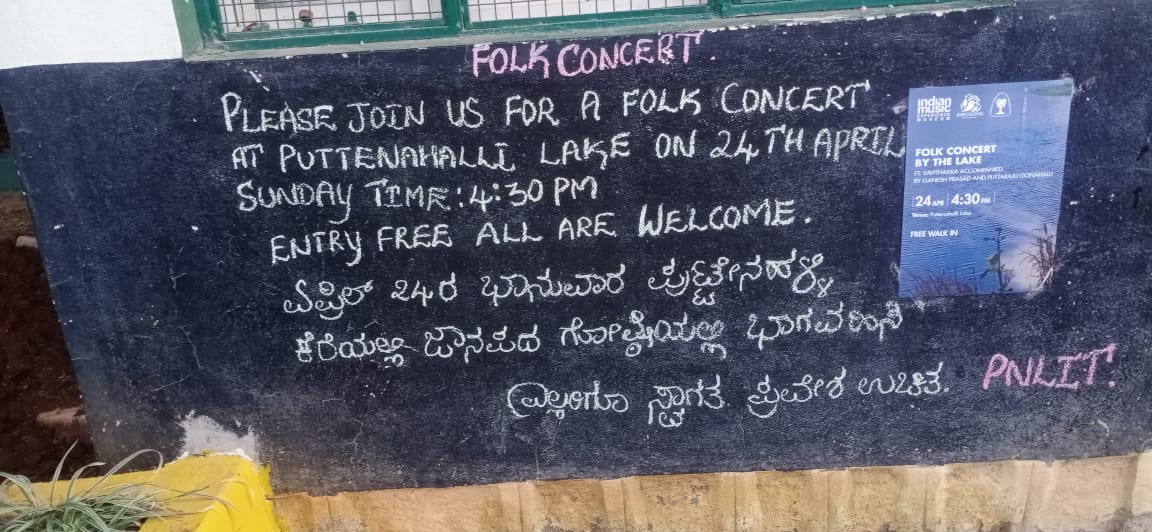 FOLK CONCERT.
PLEASE JOIN US FOR A FOLK CONCERT
AT PUTTENAHALLI LAKE ON 24TH APRIL
SUNDAY TIME: 4:30 PM
ENTRY FREE ALL ARE WELCOME.
ಏಪ್ರಿಲ್ 24ರ ಭಾನುವಾರ ಪುಟ್ಟೇನಹಳ್ಳಿ
ಕೆರೆಯಲ್ಲಿ ಜಾನಪದ ಗೋಷ್ಠಿಯಲ್ಲಿ ಭಾಗವಹಿಸಿ
ಎಲ್ಲರಿಗೂ ಸ್ವಾಗತ ಪ್ರವೇಶ ಉಚಿತ.
PNLIT.
indian
music
EXPERIENCE
MUSEUM
FOLK CONCERT
BY THE LAKE
FT. SAVITHAKKA ACCOMPANIED
BY GANESH PRASAD AND PUTTARAJU GONAHALU
24 APR | 4:30 PM
Venue: Puttenahalli Lake
FREE WALK IN